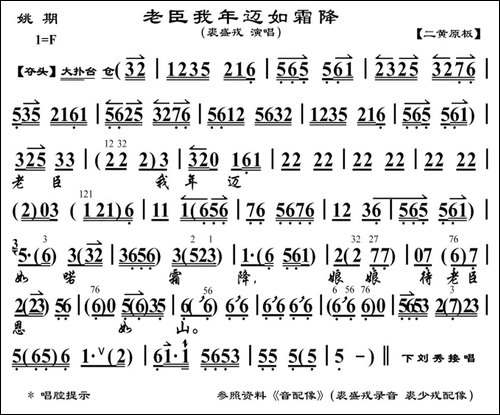 姚期
老臣我年迈如霜降
1=F
(裘盛戎 演唱)
【二黄原板】
【夺头】大扑台 仓 (32 | 1235 216 | 565 561 | 2325 3276 |
535 2161 | 5625 3276 | 5612 5632 | 1235 216 | 565 561) |
12 32
325 33 | (22 2)3 | 320 161 | 22 22 | 22 22 |
老 臣 我 年 迈
121
(2)03 (121)6 | 11 1(656 | 76 5676 | 12 36 | 565 561) |
3 2 1 32 27 76
5·(6) 3(32 | 3656) 3(523) | 1·(6 561) | 2(2 77) | 07 (6)7 |
如 喏 霜 降, 娘 娘 待 老 臣
76 56 6 56 76 3
2(23) 56 | (6)0 5(6)35 | 6(6 6 | 66 66 | 60) 1 | 5653 2(7)23 |
恩 如 山。
5(65)6 | 1·∨(2) | 61·1 | 5653 55 | 5(5 | 5 -) ‖ 下刘秀接唱
* 唱腔提示
参照资料《音配像》(裘盛戎录音 裘少戎配像)